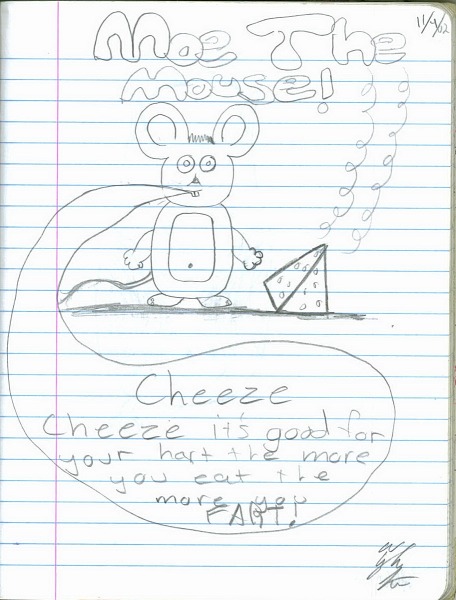 11/4/02
Moe The
Mouse!
Cheeze
Cheeze it's good for
your hart the more
you eat the
more you
FART!